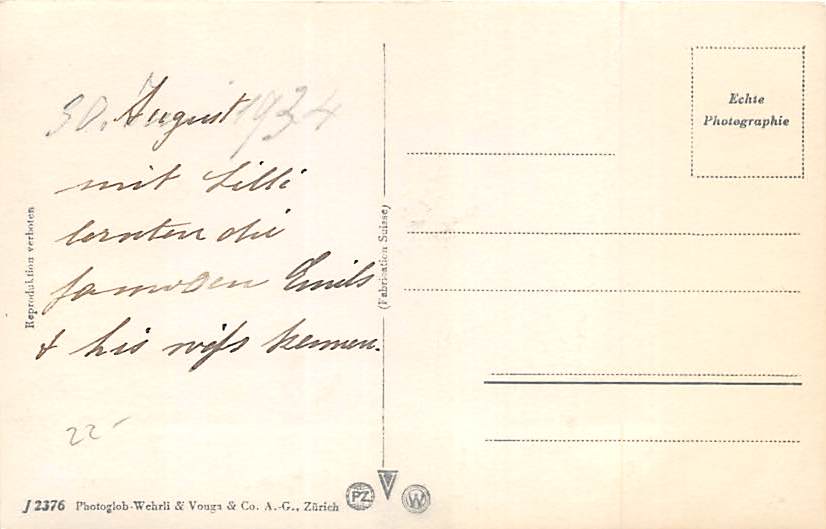 30. August 1934
mit Lilli
lernten die
famosen Emils
& his wifs kennen.
22-
Reproduktion verboten
(Fabrication Suisse)
Echte
Photographie
J 2376 Photoglob-Wehrli & Vouga & Co. A.-G., Zürich
PZ
W